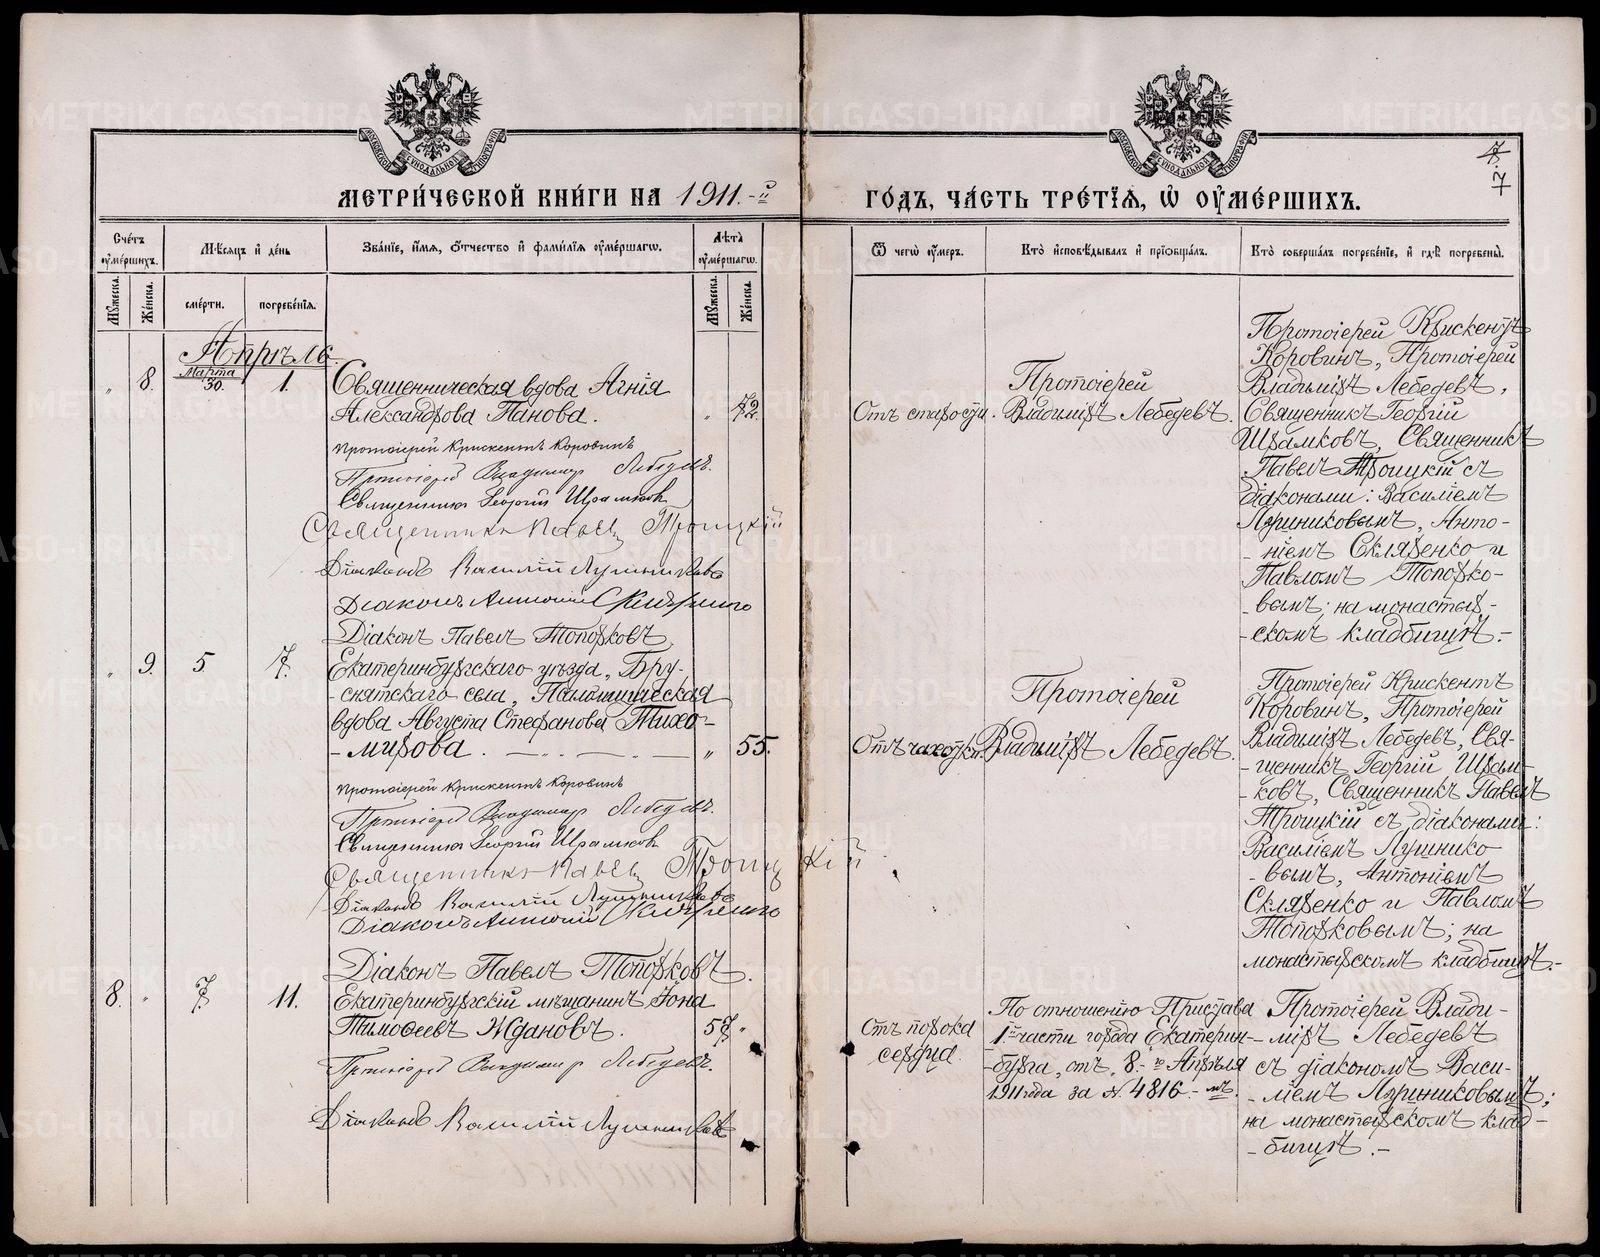 МЕТРИ́ЧЕСКОЙ КНИ́ГИ НА 1911.-й
ГО́ДЪ, ЧА́СТЬ ТРЕ́ТЇѦ, Ѡ ОУМЕ́РШИХЪ.
7
7
Сче́тъ оумершихъ.
Мѣсѧцъ и день
Зва́нїе, и́мѧ, о́тчество и фами́лїѧ оуме́ршагѡ.
Лѣта оуме́ршагѡ.
Ѿ чегѡ оу́меръ.
Кто̀ исповѣ́дывалъ и прїѡбща́лъ.
Кто̀ соверша́лъ погребе́нїе, и гдѣ̀ погребены̀.
Мꙋжеска.
Же́нска.
сме́рти.
погребе́нїѧ.
Мꙋжеска.
Же́нска.
Апрѣль.
" 8. Марта 30. 1.
Священническая вдова Агнія
Александрова Панова. " 72.
Протоіерей Крискентъ Коровинъ
Протоіерей Владимір Лебедевъ.
Священникъ Георгій Шрамковъ
Священникъ Павелъ Троицкій
Діаконъ Василій Лушниковъ
Діаконъ Антоній Скляренко
Діаконъ Павелъ Топорковъ
Отъ старости.
Протоіерей
Владиміръ Лебедевъ.
Протоіерей Крискентъ
Коровинъ, Протоіерей
Владиміръ Лебедевъ,
Священникъ Георгій
Шрамковъ, Священникъ
Павелъ Троицкій съ
діаконами: Василіемъ
Лушниковымъ, Анто-
-ніемъ Скляренко и
Павломъ Топорко-
-вымъ; на монастыр-
-скомъ кладбищѣ.-
" 9. 5 7.
Екатеринбургскаго уѣзда, Бру-
-снятскаго села, Псаломщическая
вдова Августа Стефанова Тихо-
-мирова. " 55.
Протоіерей Крискентъ Коровинъ
Протоіерей Владимір Лебедевъ.
Священникъ Георгій Шрамковъ
Священникъ Павелъ Троицкій
Діаконъ Василій Лушниковъ
Діаконъ Антоній Скляренко
Діаконъ Павелъ Топорковъ.
Отъ чахотки.
Протоіерей
Владиміръ Лебедевъ.
Протоіерей Крискентъ
Коровинъ, Протоіерей
Владиміръ Лебедевъ, Свя-
-щенникъ Георгій Шрам-
-ковъ, Священникъ Павелъ
Троицкій съ діаконами:
Василіемъ Лушнико
-вымъ, Антоніемъ
Скляренко и Павломъ
Топорковымъ; на
монастырскомъ кладбищѣ.-
8. " 7. 11.
Екатеринбургскій мѣщанинъ Іона
Тимоѳеевъ Ждановъ. 57 "
Протоіерей Владимір Лебедевъ.
Діаконъ Василій Лушниковъ
Отъ порока
сердца.
По отношенію Пристава
1-й части города Екатерин-
-бурга, отъ 8.-го Апрѣля
1911 года за № 4816.-мъ.
Протоіерей Влади-
-міръ Лебедевъ
съ діакономъ Васи-
-ліемъ Лушниковымъ;
на монастырскомъ клад-
-бищѣ.-
METRIKI.GASO-URAL.RU